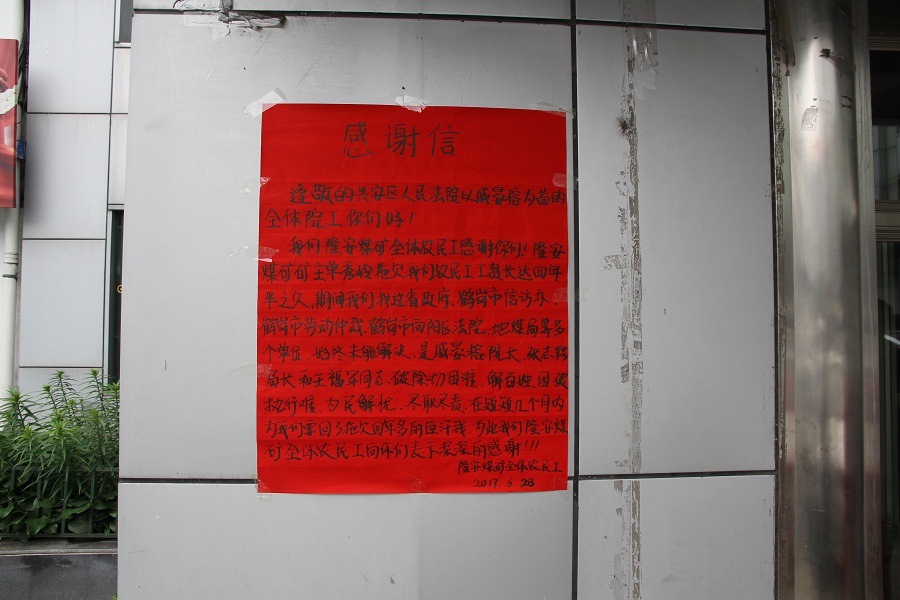 感谢信
遵敬的兴安区人民法院以戚晏榕为首的
全体院工你们好!
我们隆安煤矿全体农民工感谢你们!隆安
煤矿矿主单孝 拖欠我们农民工工资长达四年
半之久,期间我们找过省政府.鹤岗市信访办.
鹤岗市劳动仲裁.鹤岗市向阳区法院.地煤局等多
个单位.始终未能解决.是戚晏榕院长.张志
局长和王福军同志.破除一切困难.解百姓困
执行难.为民解忧.不取不贪.在短短几个月内
为我们要回了拖欠四年多的血汗钱.为此我们隆安煤
矿全体农民工向你们表示深深的感谢!!!
隆安煤矿全体农民工
2017.6.28